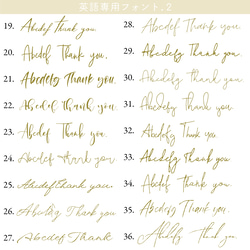 英語専用フォント.2
19. Abcdef Thank you.
20. Abcdef Thank you,
21. Abcdefg Thank you
22. Abcdef Thank you.
23. Abcdef Thank you.
24. Abcdef Thank you
25. Abcdef Thank you.
26. Abcdefg Thank you
27. Abcdef Thank
28. Abcdef Thank you.
29. Abcdefg Thank you.
30. Abcdefg Thank you
31. Abcdefg Thank you
32. Abcdef Thank you
33. Abcdefg Thank you
34. Abcdef Thank you
35. Abcdef Thank you.
36. Abcdef Thank you.